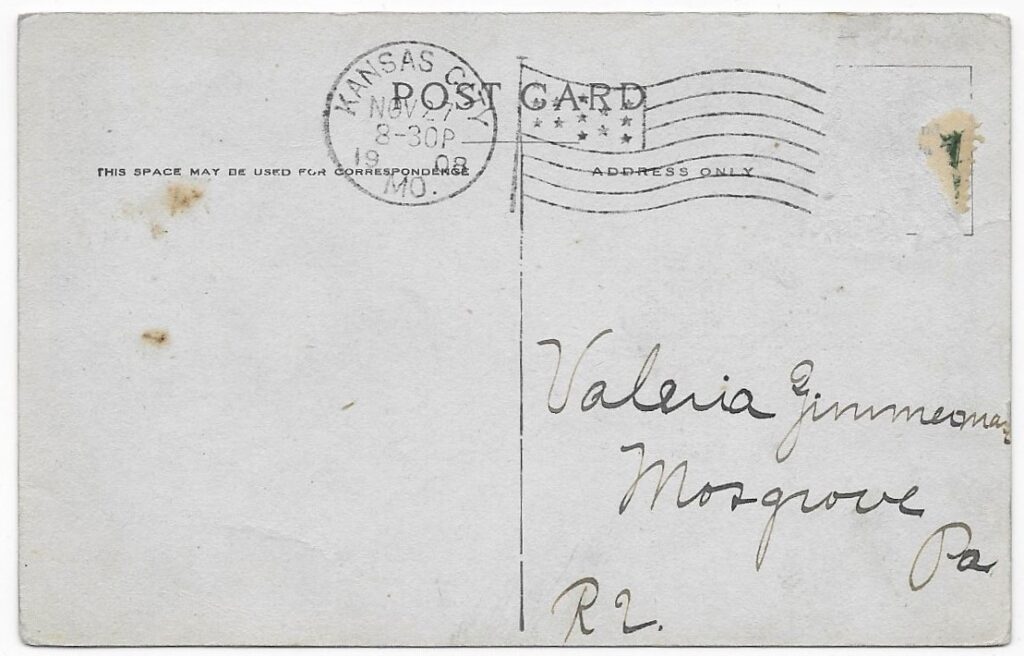 KANSAS CITY
NOV 27
8-30P
19 08
MO.
POST CARD
THIS SPACE MAY BE USED FOR CORRESPONDENCE
ADDRESS ONLY
Valeria Zimmerman
Mosgrove
Pa
R2.